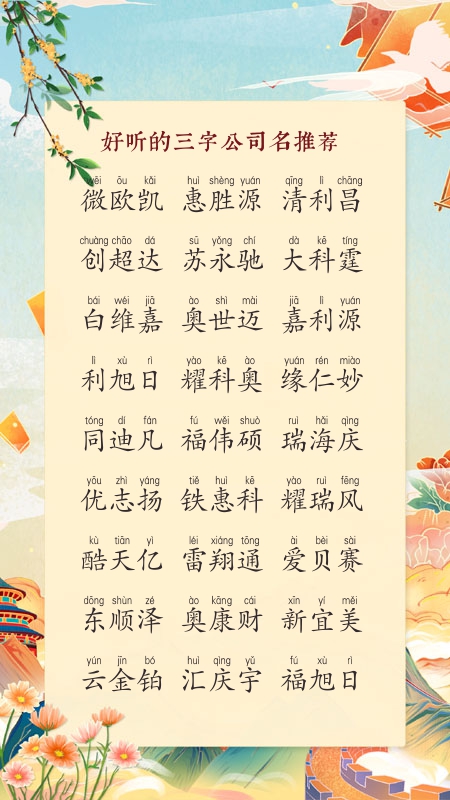 好听的三字公司名推荐
wēi ōu kǎi huì shèng yuán qīng lì chāng
微欧凯 惠胜源 清利昌
chuàng chāo dá sū yǒng chí dà kē tíng
创超达 苏永驰 大科霆
bái wéi jiā ào shì mài jiā lì yuán
白维嘉 奥世迈 嘉利源
lì xù rì yào kē ào yuán rén miào
利旭日 耀科奥 缘仁妙
tóng dí fán fú wěi shuò ruì hǎi qìng
同迪凡 福伟硕 瑞海庆
yōu zhì yáng tiě huì kē yào ruì fēng
优志扬 铁惠科 耀瑞风
kù tiān yì léi xiáng tōng ài bèi sài
酷天亿 雷翔通 爱贝赛
dōng shùn zé ào kāng cái xīn yí měi
东顺泽 奥康财 新宜美
yún jīn bó huì qìng yǔ fú xù rì
云金铂 汇庆宇 福旭日